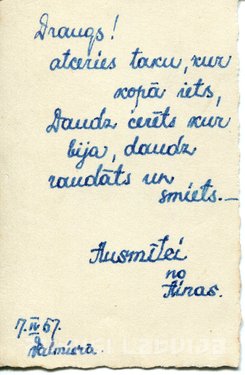 Draugs!
atceries taku, kur
kopā iets,
Daudz cerēts kur
bija, daudz
raudāts un
smiets. _
Ausmītei
no
Ainas.
7.IV 57.
Valmierā.